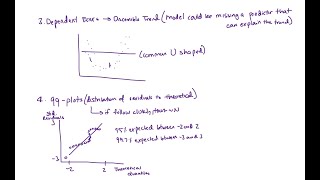 3. Dependent Errors → Discernible Trend (model could be missing a predictor that
can explain the trend)
(common U shaped)
4. qq-plots (distribution of residuals vs theoretical)
if follow closely, then
Std
Residuals
3
-3
-2
2
Theoretical
Quantiles
95% expected between -2 and 2
99.7% expected between -3 and 3